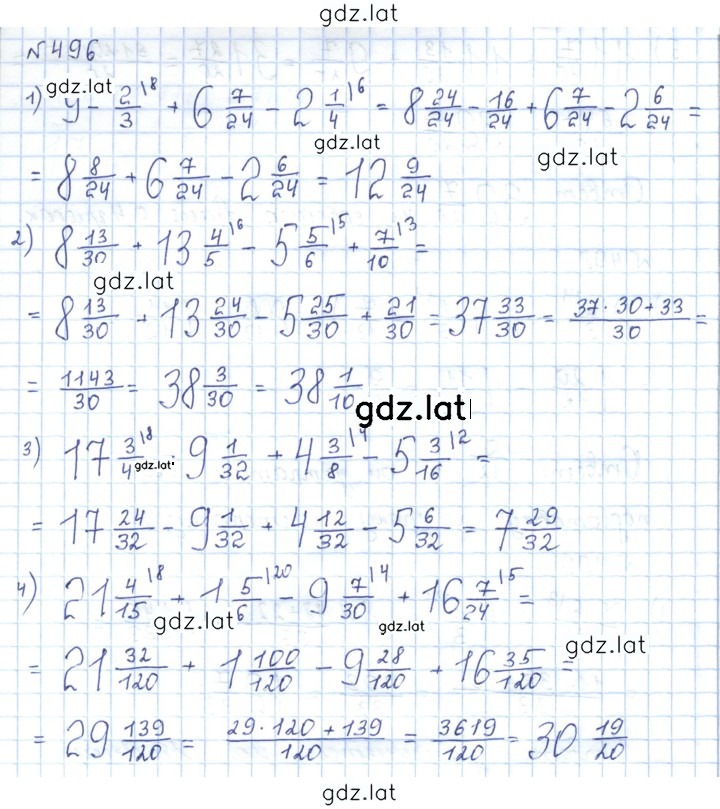 gdz.lat
№496
gdz.lat
1) y - 2/3|8 + 6 7/24 - 2 1/4|6 = 8 24/24 - 16/24 + 6 7/24 - 2 6/24 =
gdz.lat
gdz.lat
= 8 8/24 + 6 7/24 - 2 6/24 = 12 9/24
2) 8 13/30 + 13 4/5|6 - 5 5/6|5 + 7/10|3 =
gdz.lat
= 8 13/30 + 13 24/30 - 5 25/30 + 21/30 = 37 33/30 = 37·30+33/30 =
= 1143/30 = 38 3/30 = 38 1/10
gdz.lat
3) 17 3/4|8 - 9 1/32 + 4 3/8|4 - 5 3/16|2 =
gdz.lat
= 17 24/32 - 9 1/32 + 4 12/32 - 5 6/32 = 7 29/32
4) 21 4/15|8 + 1 5/6|20 - 9 7/30|4 + 16 7/24|5 =
gdz.lat
gdz.lat
gdz.lat
= 21 32/120 + 1 100/120 - 9 28/120 + 16 35/120 =
= 29 139/120 = 29·120+139/120 = 3619/120 = 30 19/20
gdz.lat